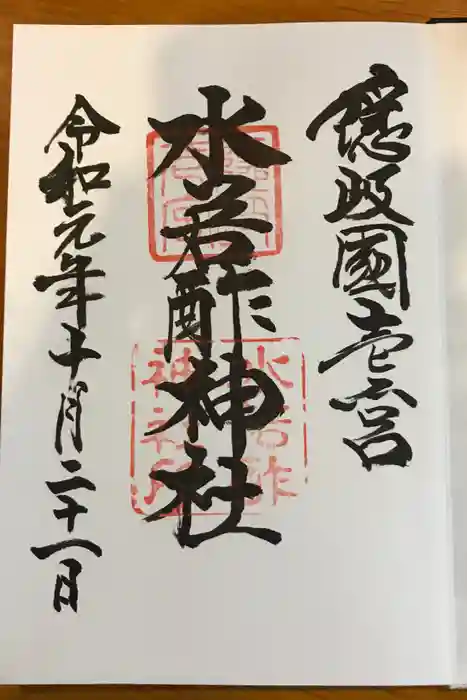 隠岐國壱宮
水若酢神社
令和元年十月二十一日
水若酢
神社印